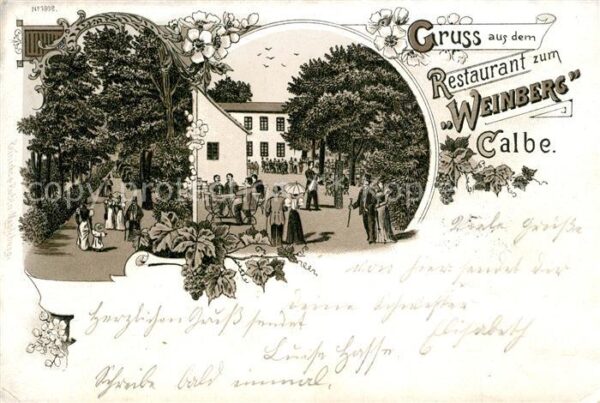 No 1898.
Gruss aus dem
Restaurant zum
„WEINBERG”
Calbe.
Viele Grüße
von hier sendet der
deine Schwester
Elisabeth
Herzlichen Gruß sendet
Luise Hasse.
Schreibe bald einmal.